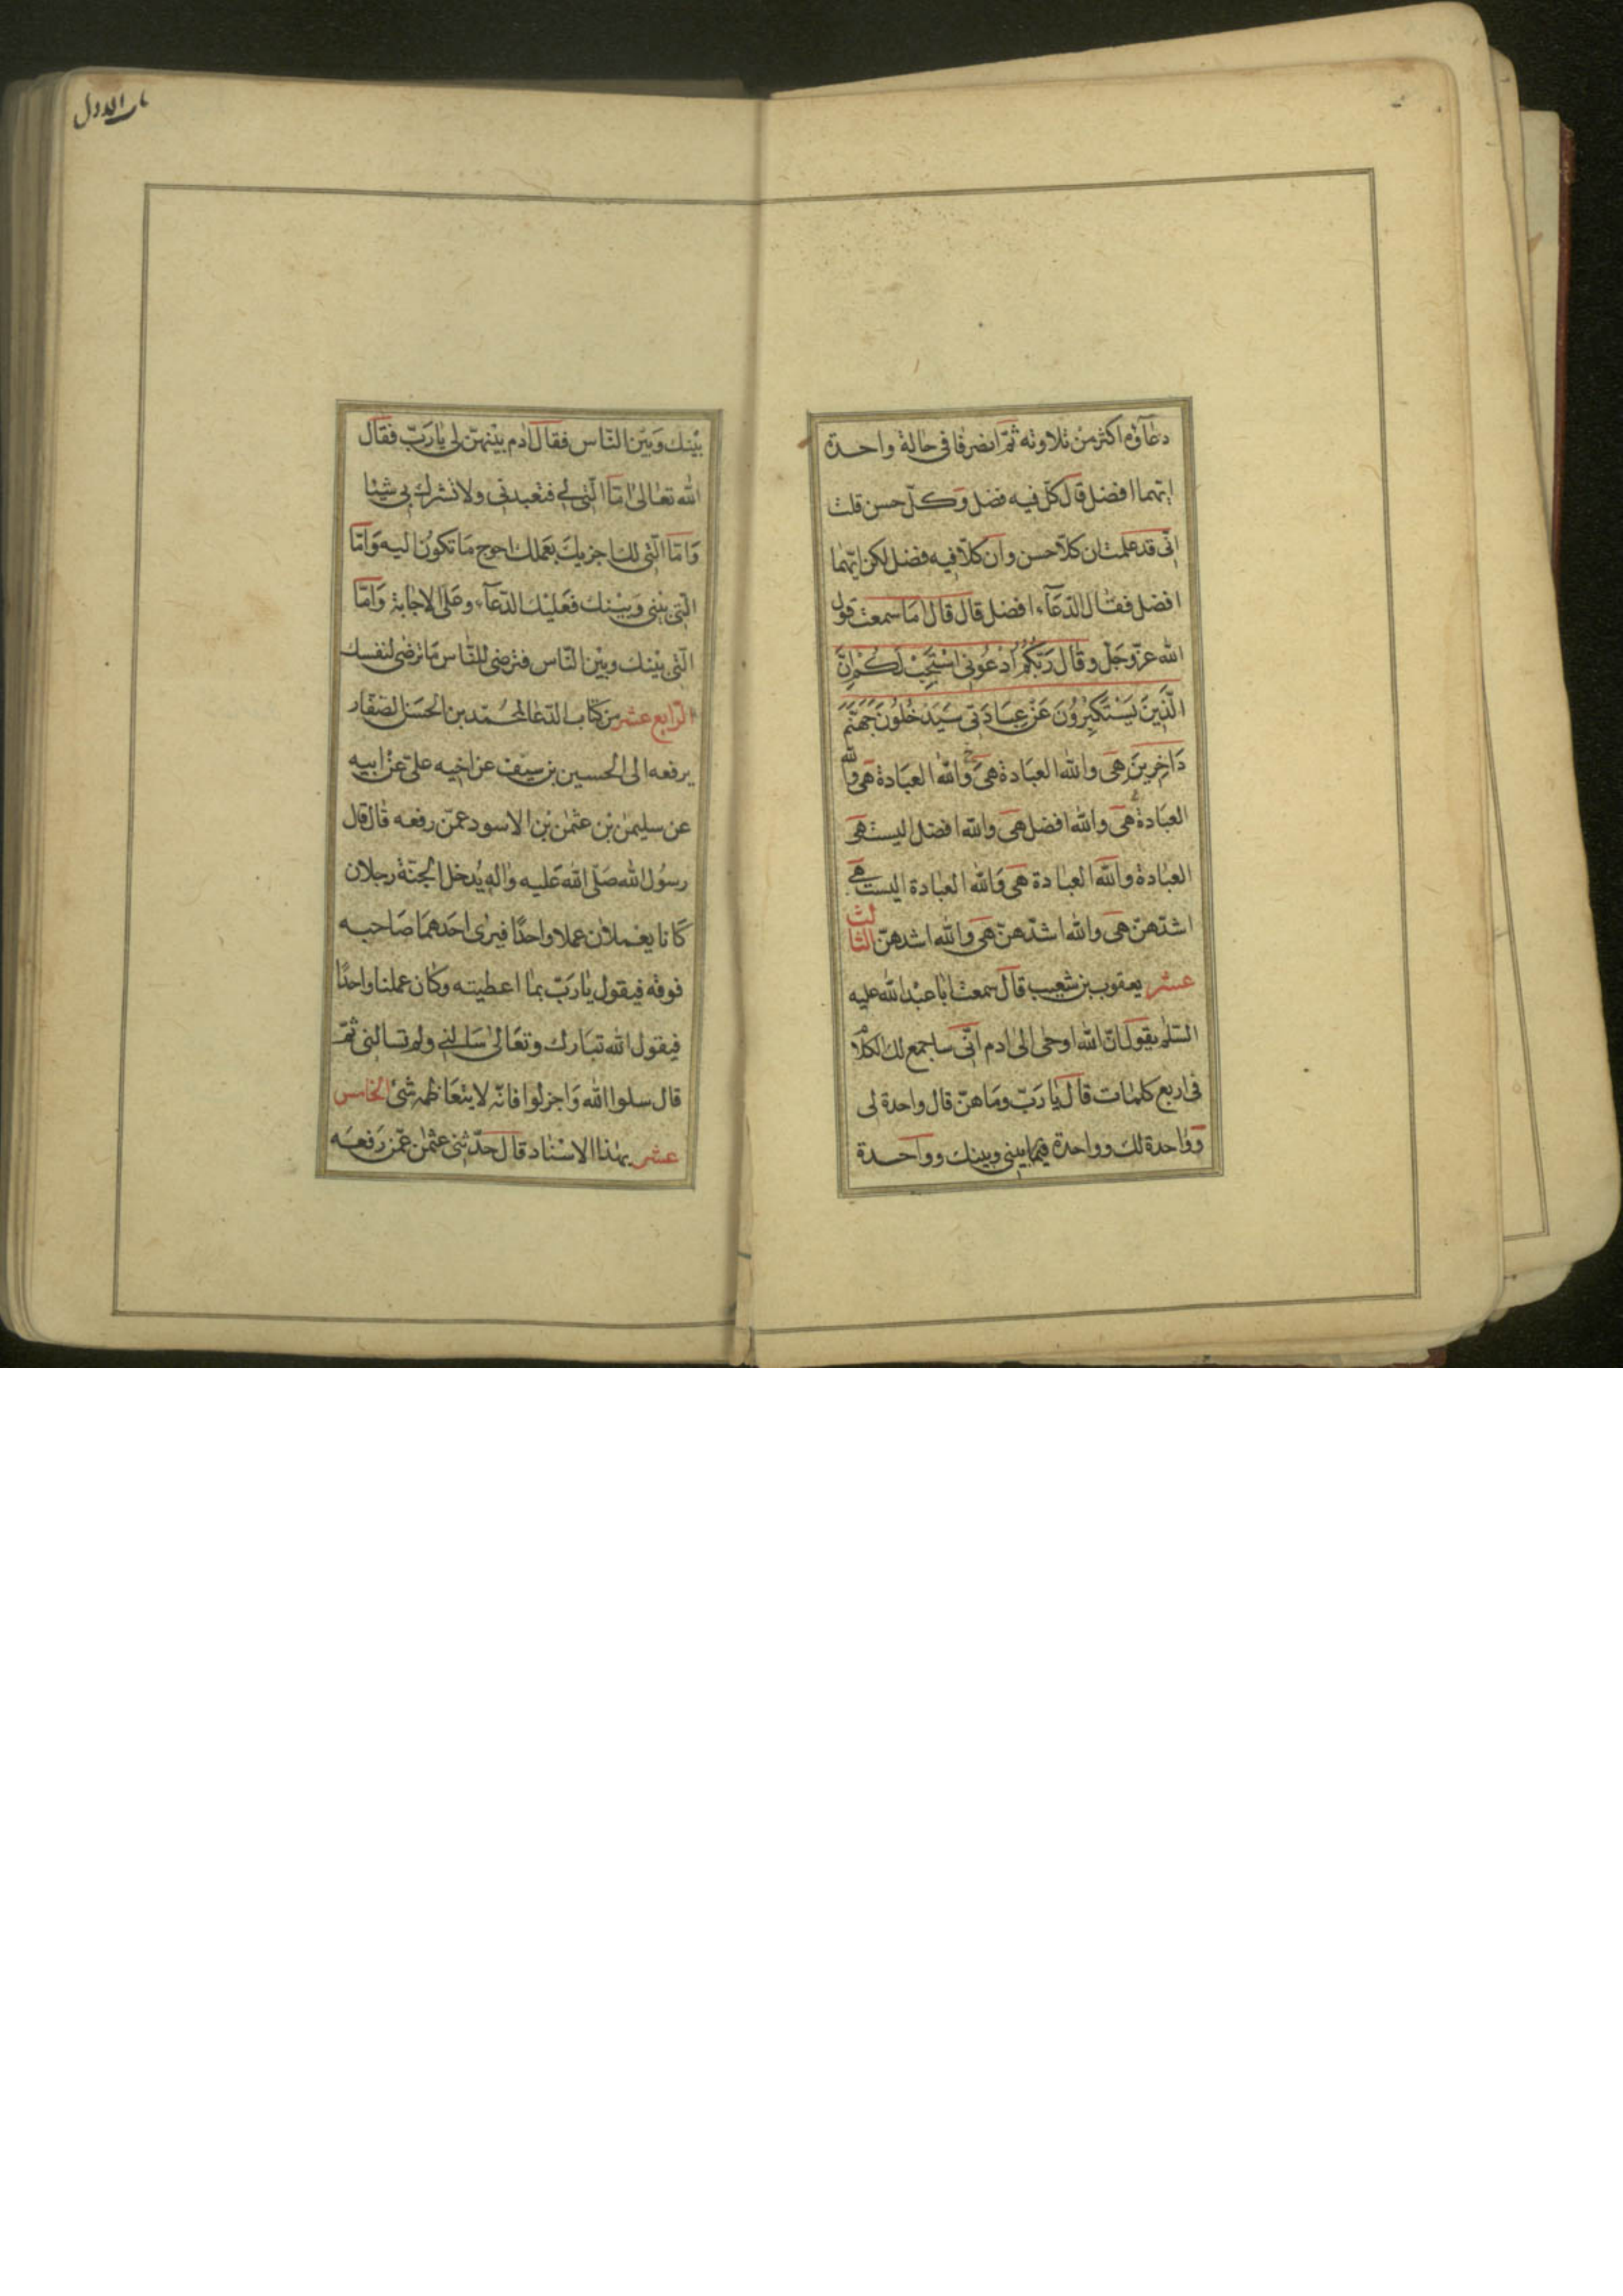 دعاؤه اكثر من تلاوته ثمّ انصرفا فى حالة واحدة
ايّهما افضل قال كلّ فيه فضل وكلّ حسن قلت
انّى قد علمت ان كلّا حسن وان كلّا فيه فضل لكن ايّهما
افضل فقال الدّعآء افضل قال قال اما سمعت قول
الله عزّوجلّ وقال رَبُّكُمُ ادْعُونى اسْتَجِبْ لَكُمْ اِنَّ
الَّذينَ يَسْتَكْبِرُونَ عَنْ عِبادَتى سَيَدْخُلُونَ جَهَنَّمَ
دَاخِرينَ هى والله العبادة هى والله العبادة هى والله
العبادة هى والله افضل هى والله افضل اليست هى
العبادة والله العبادة هى والله العبادة اليست هى
اشدّهنّ هى والله اشدّهنّ هى والله اشدهنّ الثالث
عشر يعقوب بن شعيب قال سمعت ابا عبد الله عليه
السّلم يقول انّ الله اوحى الى ادم انّى ساجمع لك الكلام
فى اربع كلمات قال يا ربّ وما هنّ قال واحدة لى
وواحدة لك وواحدة فيما بينى وبينك وواحدة
باب الاول
بينك وبين النّاس فقال ادم بيّنهنّ لى يا ربّ فقال
الله تعالى امّا الّتى لى فتعبدنى ولا تشرك بى شيئا
وامّا الّتى لك اجزيك بعملك احوج ما تكون اليه وامّا
الّتى بينى وبينك فعليك الدّعآء وعلىّ الاجابة وامّا
الّتى بينك وبين النّاس فترضى للنّاس ما ترضى لنفسك
الرّابع عشر من كتاب الدّعا لمحمّد بن الحسن الصّفار
يرفعه الى الحسين بن سيف عن اخيه علىّ عن ابيه
عن سليمن بن عثمن بن الاسود عمّن رفعه قال قال
رسول الله صلّى الله عليه واله يدخل الجنّة رجلان
كانا يعملان عملا واحدًا فيرى احدهما صاحبه
فوقه فيقول يا ربّ بما اعطيته وكان عملنا واحدًا
فيقول الله تبارك وتعالى سالنى ولم تسالنى ثمّ
قال سلوا الله واجزلوا فانّه لا يتعاظمه شئ الخامس
عشر بهذا الاسناد قال حدّثنى عثمن عمّن رفعه